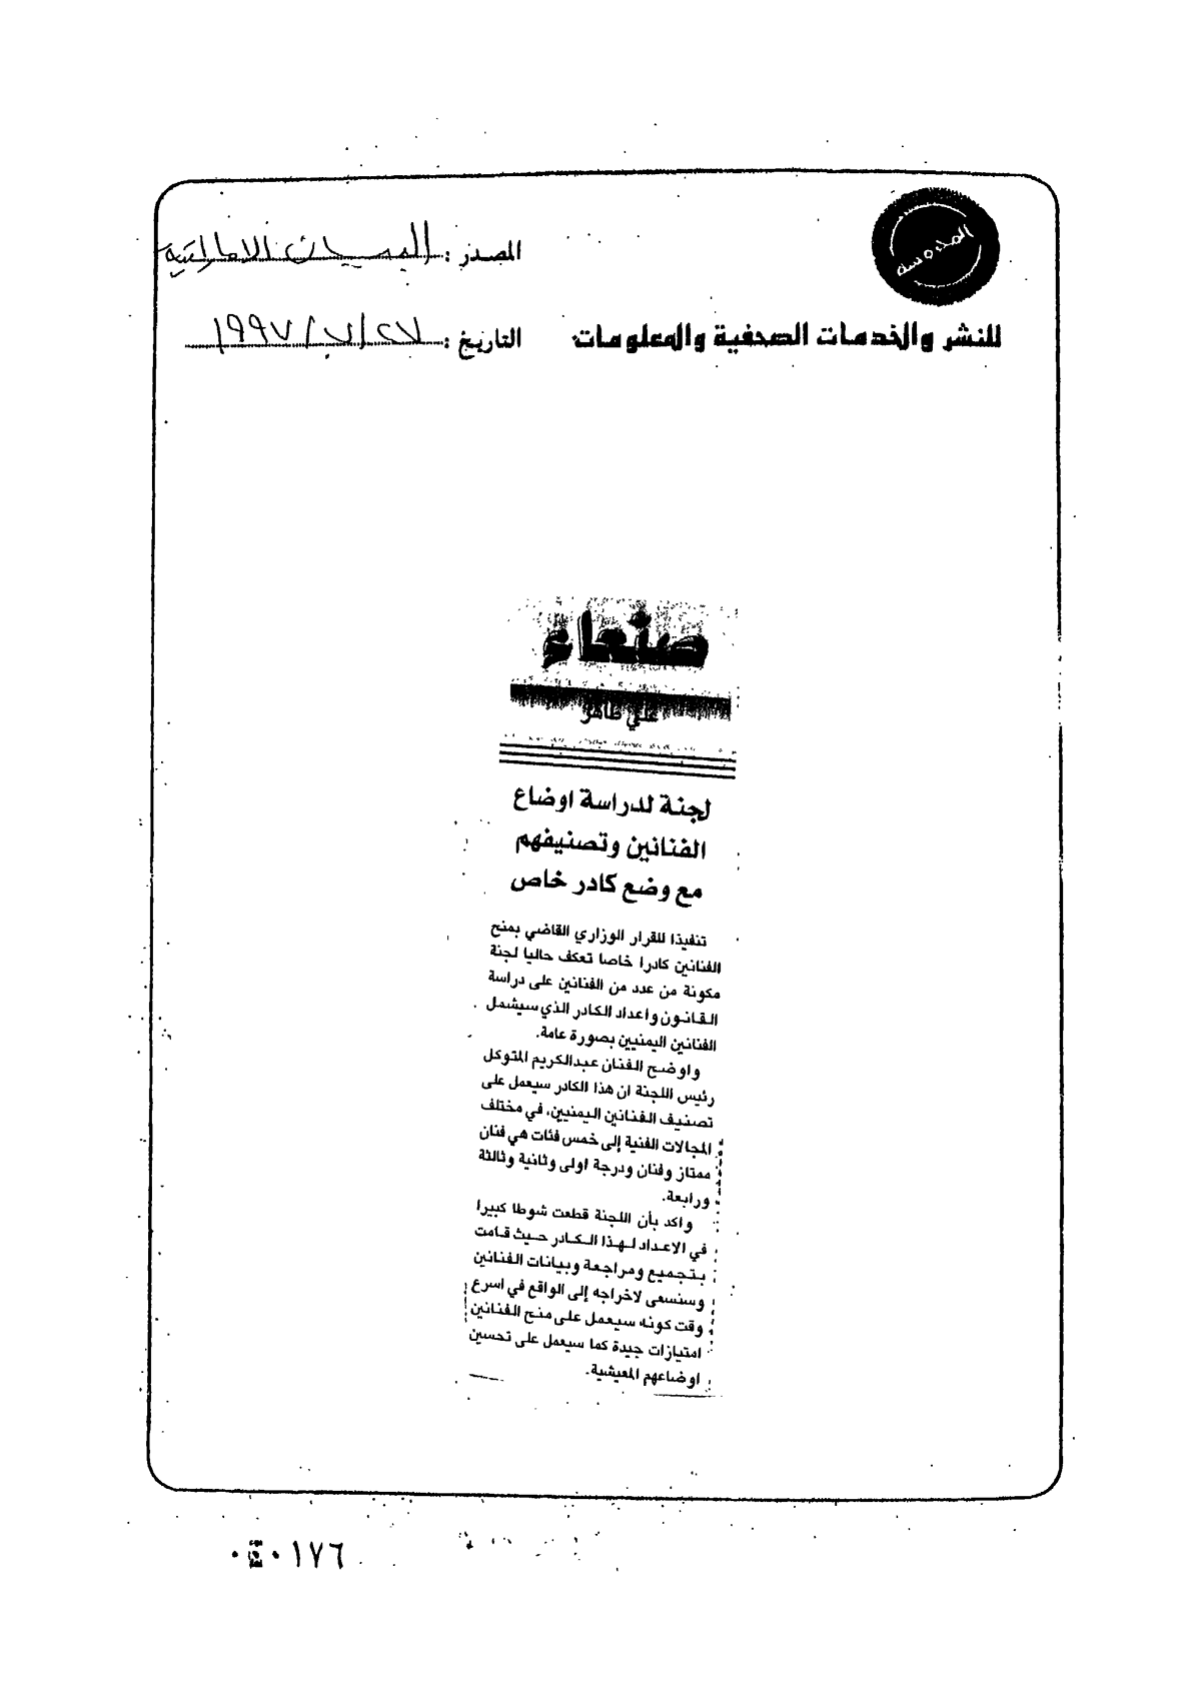 المدوسه
المصدر : البيان الاماراتية
للنشر والخدمات الصحفية والمعلومات
التاريخ : ٢٧/٧/١٩٩٧
صنعاء
علي طاهر
لجنة لدراسة اوضاع
الفنانين وتصنيفهم
مع وضع كادر خاص
تنفيذا للقرار الوزاري القاضي بمنح
الفنانين كادرا خاصا تعكف حاليا لجنة
مكونة من عدد من الفنانين على دراسة
القانون واعداد الكادر الذي سيشمل
الفنانين اليمنيين بصورة عامة.
واوضح الفنان عبدالكريم المتوكل
رئيس اللجنة ان هذا الكادر سيعمل على
تصنيف الفنانين اليمنيين، في مختلف
المجالات الفنية إلى خمس فئات هي فنان
ممتاز وفنان ودرجة اولى وثانية وثالثة
ورابعة.
واكد بأن اللجنة قطعت شوطا كبيرا
في الاعداد لهذا الكادر حيث قامت
بتجميع ومراجعة وبيانات الفنانين
وسنسعى لاخراجه إلى الواقع في اسرع
وقت كونه سيعمل على منح الفنانين
امتيازات جيدة كما سيعمل على تحسين
اوضاعهم المعيشية.
٠١٧٦